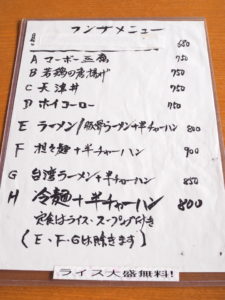 ランチメニュー
680
A マーボー豆腐 750
B 若鶏の唐揚げ 750
C 天津丼 750
D ホイコーロー 750
E ラーメン/豚骨ラーメン+半チャーハン 800
F 担々麺+半チャーハン 900
G 台湾ラーメン+半チャーハン 850
H 冷麺+半チャーハン 800
定食はライス・スープ付き
(E・F・Gは除きます)
ライス大盛無料!